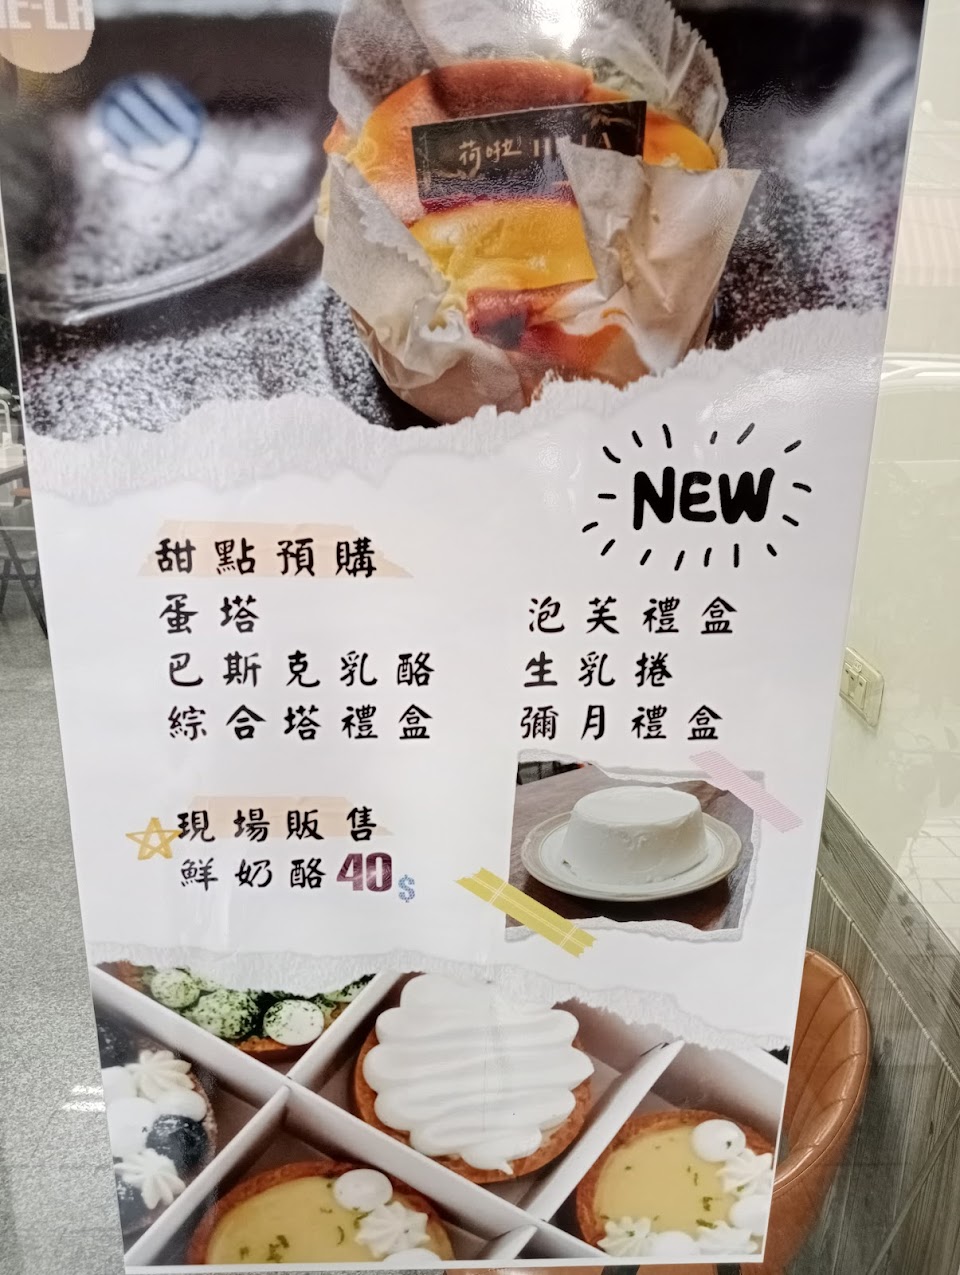 荷啦
NEW
甜點預購
蛋塔
巴斯克乳酪
綜合塔禮盒
泡芙禮盒
生乳捲
彌月禮盒
現場販售
鮮奶酪40$